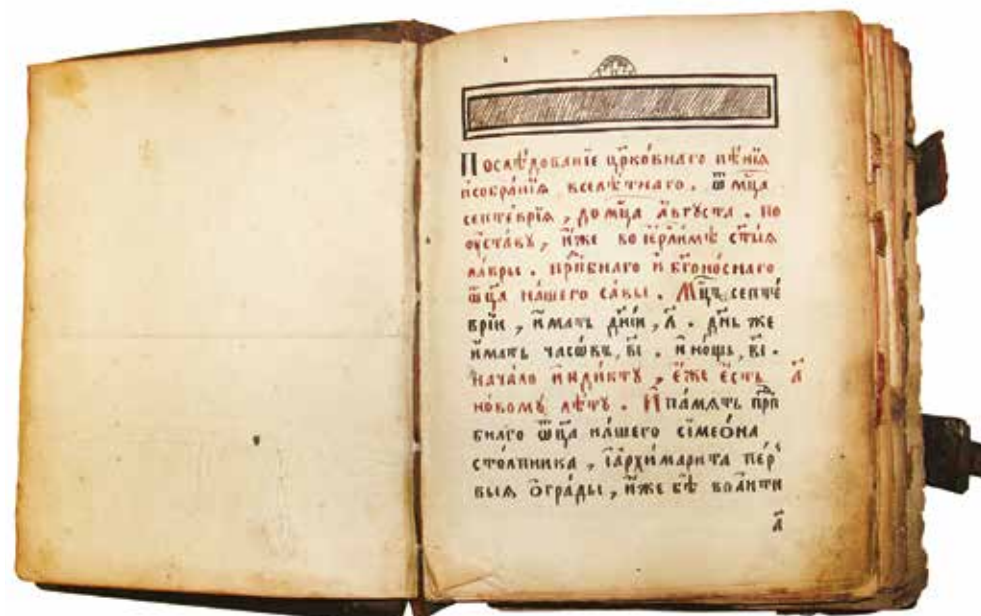 Послѣ́дованїе цр҃ко́внагѡ пѣ́нїѧ
и҆собра́нїѧ вселѣ́тнаго. ѿ мц҃а
септе́врїѧ, до мц҃а а҆́вгꙋста. по
оу҆ста́вꙋ, и҆́же во і҆ерⷭ҇ли́мѣ ст҃ы́ѧ
ла́вры. прпⷣбнаго и҆ бг҃оно́снаго
ѿц҃а на́шего са́вы. Мц҃ъ септе́
врїи, и҆́мать дні́й, л҃. дн҃ь же
и҆́мать часѡ́въ, в҃і. и҆ но́щь, в҃і.
нача́ло и҆нди́ктꙋ, є҆́же є҆́сть а҃
но́вомꙋ лѣ́тꙋ. И҆ па́мѧть прпⷣ
бнаго ѿц҃а на́шего сїмео́на
сто́лпника, і҆а҆рхимари́та пе́р
выѧ ѡ҆гра́ды, и҆́же бѣ̀ во а҆нти
а҃